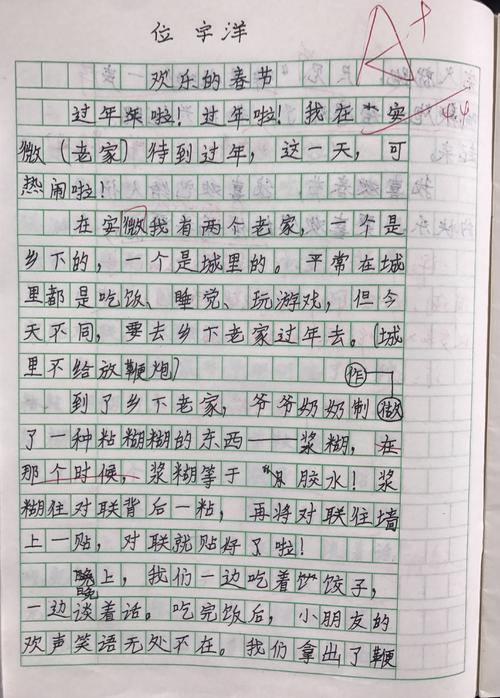 位宇洋
A+
欢乐的春节
过年来啦！过年啦！我在安 4.4
微（老家）待到过年，这一天，可
热闹啦！
在安微我有两个老家，一个是
乡下的，一个是城里的。平常在城
里都是吃饭、睡觉、玩游戏，但今
天不同，要去乡下老家过年去。（城
里不给放鞭炮）
作
到了乡下老家，爷爷奶奶制做
了一种粘糊糊的东西——浆糊，在
那个时候，浆糊等于胶水！浆
糊往对联背后一粘，再将对联往墙
上一贴，对联就贴好了啦！
晚上，我们一边吃着饺子，
晚
一边谈着话。吃完饭后，小朋友的
欢声笑语无处不在。我们拿出了鞭